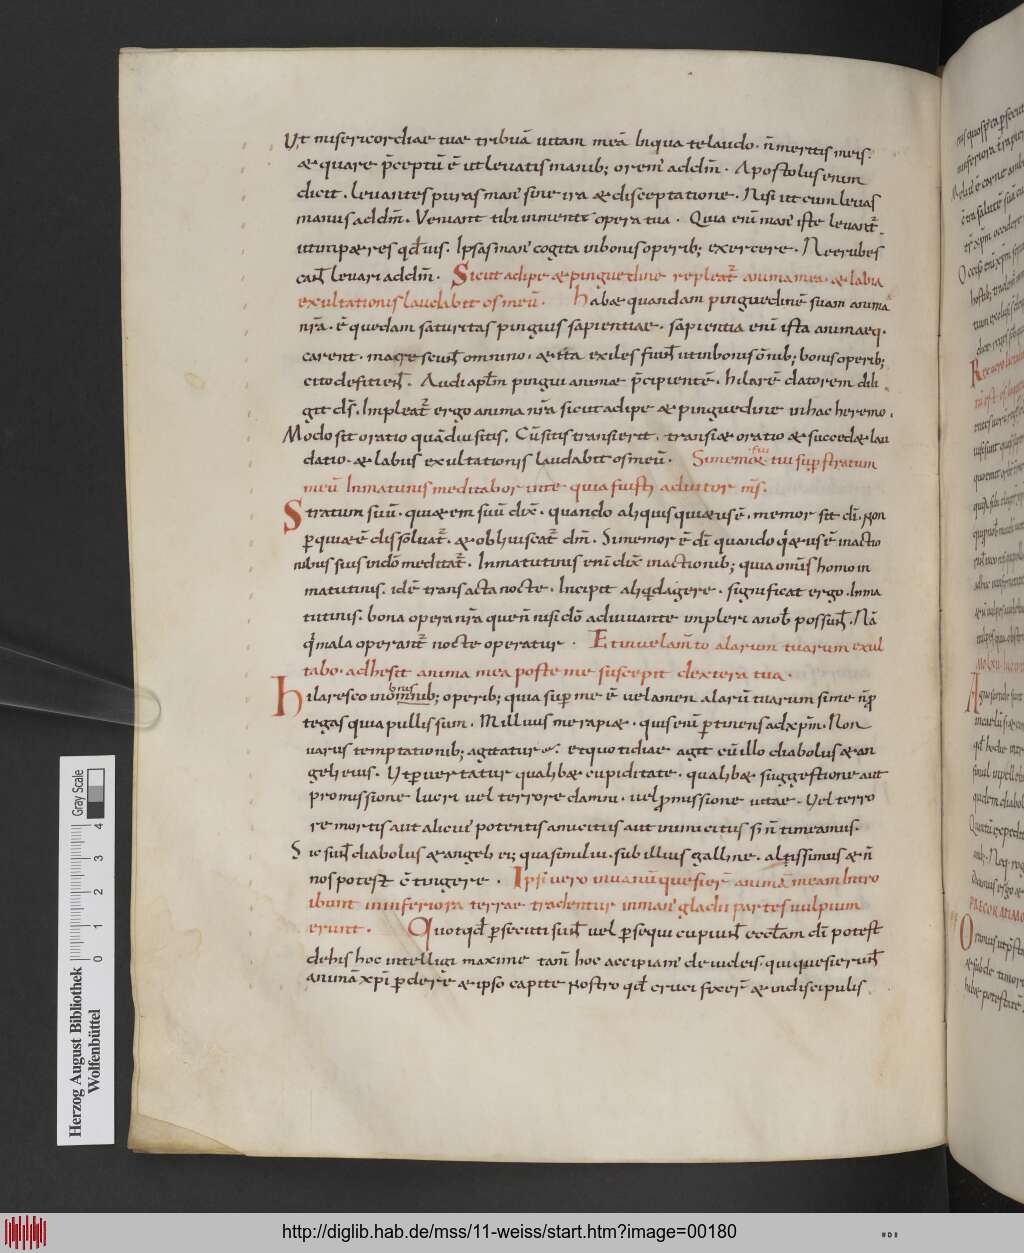 Ut misericordiae tuae tribuā uitam meā In qua te laudo · n̄ meritis meis ·
& quare p̄ceptū ē ut leuatis manib; orem' ad dm̄ · Apostolus enim
dicit · leuantes puras man' sine ira & disceptatione · Nisi ut cum leuas
manus ad dm̄ · Veniant tibi in mente opera tua · Quia enī man' iste leuant̄
ut inp&res qđ uis · Ipsas man' cogita in bonis operib; exercere · Ne erubes
cant leuari ad dm̄ · Sicut adipe & pinguedine repleat̄ anima mea · & labia
exultationis laudabit os meū · Hab& quandam pinguedinē suam anima
nr̄a · ē quedam saturitas pinguis sapientiae · sapientia enī ista animae q·
carent · macre sunt omnino · & ita exiles fiunt ut in bonis om̄ib; bonis operib;
cito deficient · Audi aplm̄ pingui animae p̄cipientē · hilarē datorem dili
git ds̄ · Impleat̄ ergo anima nr̄a sicut adipe & pinguedine in hac heremo ·
Modo sit oratio quā diu sitis, Cū sitis transierit · transi& oratio & succed& lau
datio · & labiis exultationis laudabit os meū · Si memor fui tui sup stratum
meū In matutinis meditabor in te quia fuisti adiutor m̄s ·
Stratum suū · qui&em suū dix̄ · quando aliquis qui&us ē · memor sit dī · non
p qui&ē dissoluat̄ · & obliuiscat̄ dm̄ · Si memor ē dī quando q̄&us ē in actio
nibus suis in dō meditat̄ · In matutinis enī dix̄ in actionib; quia om̄is homo in
matutinis · idē transacta nocte · Incipit aliqđ agere · significat ergo · In ma
tutinis · bona opera nr̄a que n̄ nisi dō adiuuante impleri a nob̄ possunt · Nā
q̄ mala operant̄ nocte operatur · Et in uelam̄to alarum tuarum exul
tabo · adhesit anima mea poste me suscepit dextera tua ·
bonis
Hilaresco in omnib; operib; quia sup me ē uelamen alarū tuarum si me n̄ p
tegas quia pullis sum · Miluus me rapi& · quis enī ptinens ad xp̄m · Non
uariis temptationib; agitatur · et quotidiae agit cū illo diabolus & an
geli eius · Ut puertatur qualib& cupiditate · qualib& suggestione aut
promissione lucri uel terrore damni · uel pmissione uitae · Uel terro
re mortis aut alicui' potentis amicitiis aut inimicitiis si n̄ timeamus ·
Sic sunt diabolus & angeli ei; quasi milui · sub illius galline · altissimus & n̄
nos potest c̄tingere · Ipsi uero in uanū quesier̄ animā meam Intro
ibunt in inferiora terrae tradentur in man' gladii partes uulpium
erunt · Quotqđ psecuti sunt uel psequi cupiunt eccl̄am dī potest
de his hoc intelligi maxime tam̄ hoc accipiam' de iudeis · qui quesierunt
animā xp̄i pdere & ipso capite nostro qđ cruci fixer̄ & in discipulis
Herzog August Bibliothek
Wolfenbüttel
0 1 2 3 4
Gray Scale
http://diglib.hab.de/mss/11-weiss/start.htm?image=00180